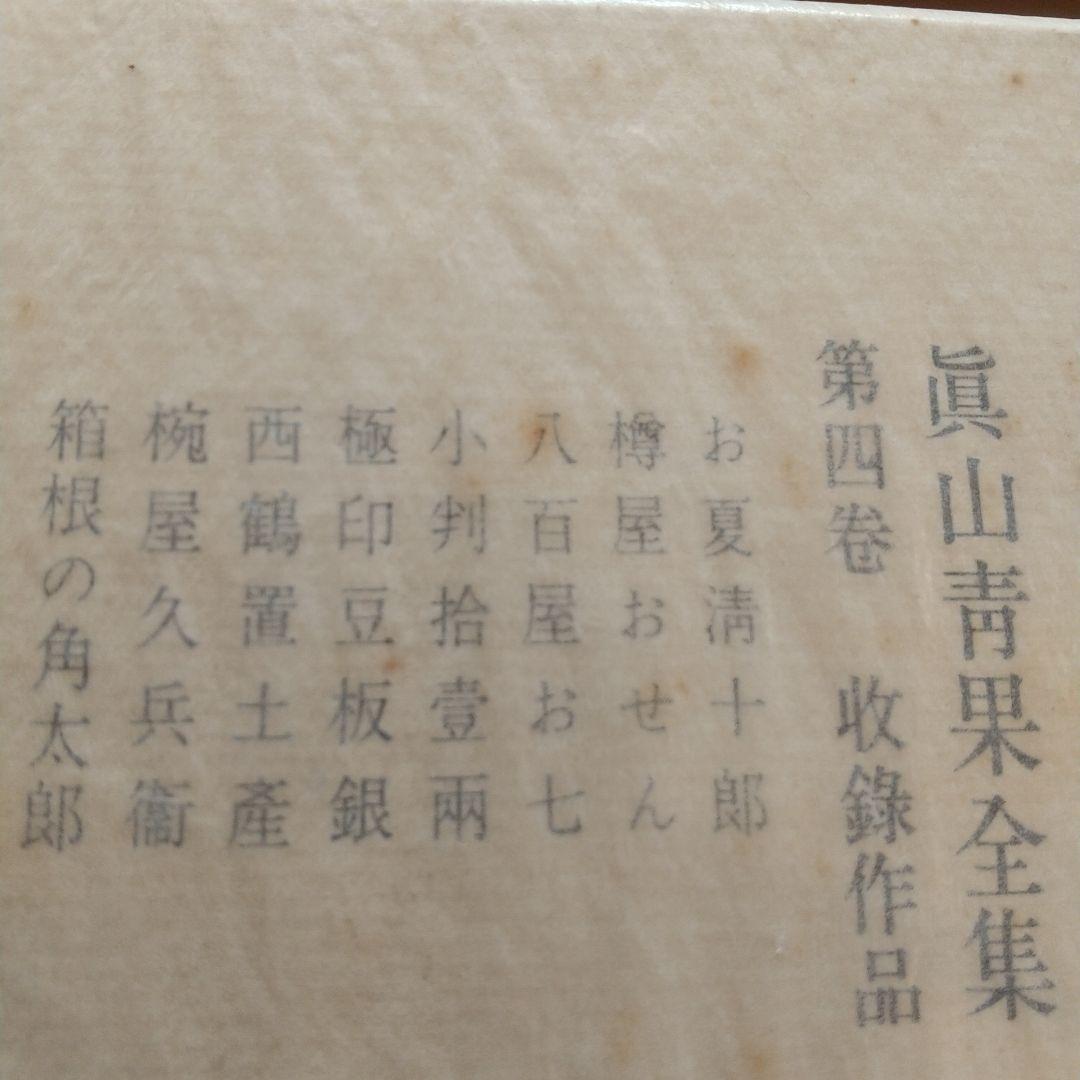 眞山靑果全集
第四卷　收錄作品
お夏淸十郎
樽屋おせん
八百屋お七
小判拾壹兩
極印豆板銀
西鶴置土產
椀屋久兵衞
箱根の角太郎